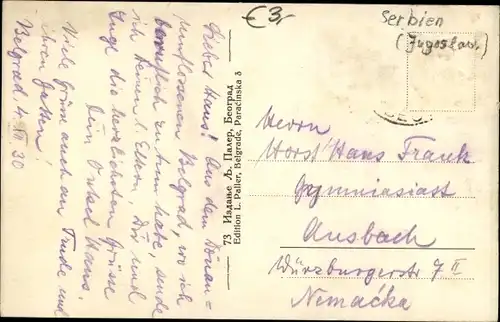 €3,-
Serbien
(Jugoslaw.)
Lieber Hans! Aus dem Donau-
umflossenen Belgrad, wo ich
beruflich zu tun habe, sende
ich Deinen Eltern, Dir und
die herzlichsten Grüsse
Dein Onkel Hans.
Viele Grüsse auch an Trude und
ihren Gatten!
Belgrad, 4. VI. 30
73 Издање Љ. Палер, Београд
Edition L. Paller, Belgrade, Paraćinska 5
Herrn
Horst Hans Frank
Gymnasiast
Ansbach
Würzburgerstr 7 II
Nemačka